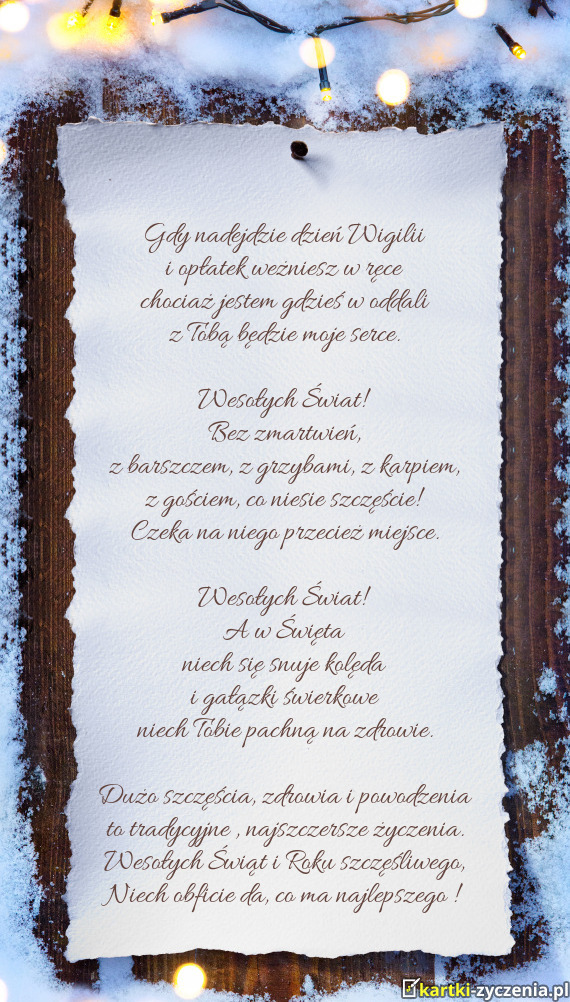 Gdy nadejdzie dzień Wigilii
i opłatek weźniesz w ręce
chociaż jestem gdzieś w oddali
z Tobą będzie moje serce.
Wesołych Świat!
Bez zmartwień,
z barszczem, z grzybami, z karpiem,
z gościem, co niesie szczęście!
Czeka na niego przecież miejsce.
Wesołych Świat!
A w Święta
niech się snuje kolęda
i gałązki świerkowe
niech Tobie pachną na zdrowie.
Dużo szczęścia, zdrowia i powodzenia
to tradycyjne , najszczersze życzenia.
Wesołych Świąt i Roku szczęśliwego,
Niech obficie da, co ma najlepszego !
kartki-zyczenia.pl